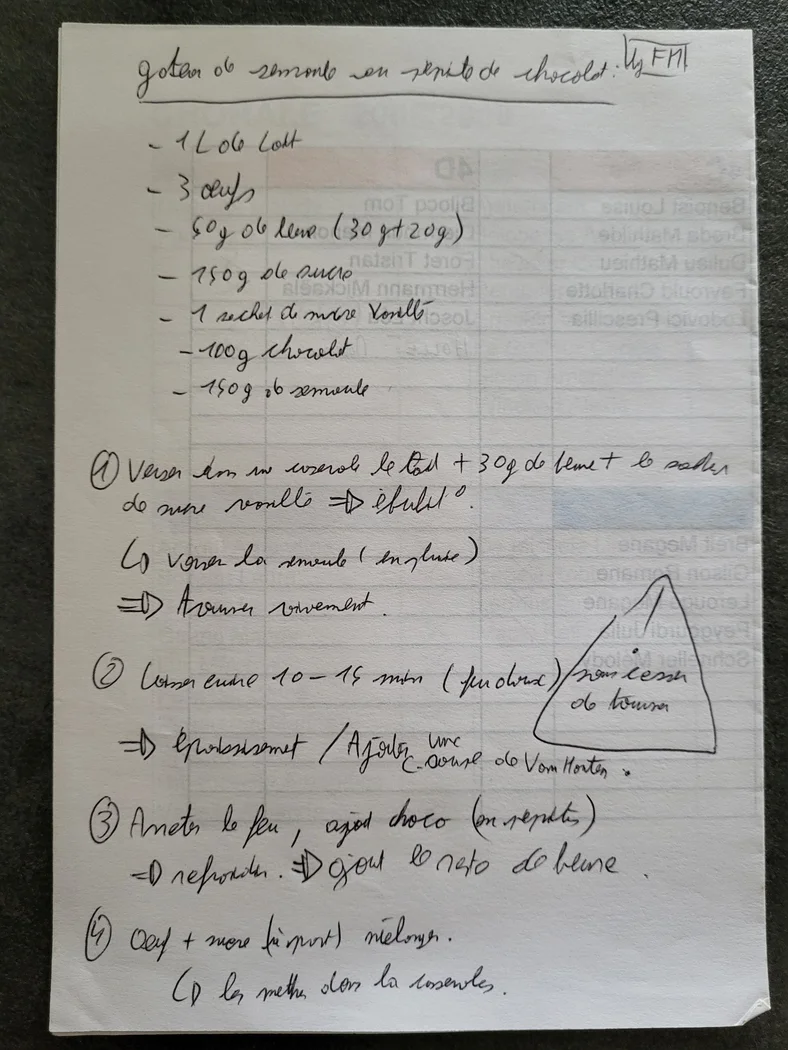 gateau de semoule aux pépites de chocolat. by FM
- 1 L de lait
- 3 œufs
- 50g de beurre (30g + 20g)
- 150g de sucre
- 1 sachet de sucre vanillé
- 100g chocolat
- 150g de semoule
① Verser dans une casserole le lait + 30g de beurre + le sachet
de sucre vanillé => ébulit°.
↳ verser la semoule (en pluie)
=> Tourner vivement.
② Laisser cuire 10 - 15 min (feu doux)
sans cesser
de tourner
=> épaississement / Ajouter une
c. soupe de Van Houten.
③ Arreter le feu, ajout choco (en pépites)
=> refroidir. => ajout le reste de beurre.
④ Oeuf + sucre (à part) mélanger.
↳ les mettre dans la casserole.
4D
Benoist Louise
Bilocq Tom
Broda Mathilde
Dulieu Mathieu
Foret Tristan
Favrould Charlotte
Herrmann Mickaëla
Lodovici Prescillia
Breit Megane
Gilson Romane